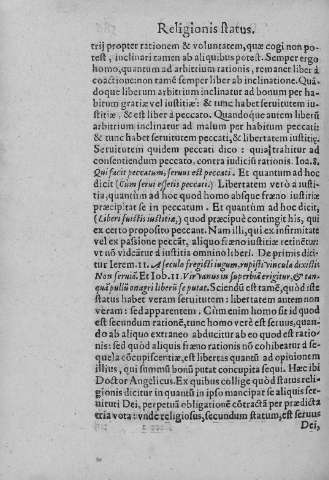 Religionis status.
trij propter rationem & voluntatem, quæ cogi non po-
test, inclinari tamen ab aliquibus potest. Semper ergo
homo, quantum ad arbitrium rationis, remanet liber à
coactione: non tamẽ semper liber ab inclinatione. Quã-
doque liberum arbitrium inclinatur ad bonum per ha-
bitum gratiæ vel iustitiæ: & tunc habet seruitutem iu-
stitiæ, & est liber à peccato. Quandoque autem liberũ
arbitrium inclinatur ad malum per habitum peccati:
& tunc habet seruitutem peccati, & libertatem iustitię.
Seruitutem quidem peccati dico: quia trahitur ad
consentiendum peccato, contra iudiciũ rationis. Ioa. 8.
Qui facit peccatum, seruus est peccati. Et quantum ad hoc
dicit (Cùm serui essetis peccati.) Libertatem verò à iusti-
tia, quantum ad hoc quod homo absque fræno iustitiæ
præcipitat se in peccatum. Et quantum ad hoc dicit,
(Liberi fuistis iustitiæ,) quod præcipuè contingit his, qui
ex certo proposito peccant. Nam illi, qui ex infirmitate
vel ex passione peccãt, aliquo fræno iustitiæ retinẽtur:
vt nõ videãtur à iustitia omnino liberi. De primis dici-
tur Ierem. 11. A seculo fregisti iugum, rupisti vincula dixisti:
Non seruiã. Et Iob. 11. Vir vanus in superbiã erigitur, & tan-
quã pullũ onagri liberũ se putat. Sciendũ est tamẽ, quòd iste
status habet veram seruitutem: libertatem autem non
veram: sed apparentem. Cùm enim homo sit id quod
est secundum rationẽ, tunc homo verè est seruus, quan-
do ab aliquo extraneo abducitur ab eo quod est ratio-
nis: sed quòd aliquis fræno rationis nõ cohibeatur à se-
quela cõcupiscẽtiæ, est libertas quantũ ad opinionem
illius, qui summũ bonũ putat concupita sequi. Hæc ibi
Doctor Angelicus. Ex quibus collige quòd status reli-
gionis dicitur in quantũ in ipso mancipat se aliquis ser-
uituti Dei, perpetuã obligationẽ cõtractã per prædicta
tria vota: vnde religiosus, secundum statum, est seruus
Dei,